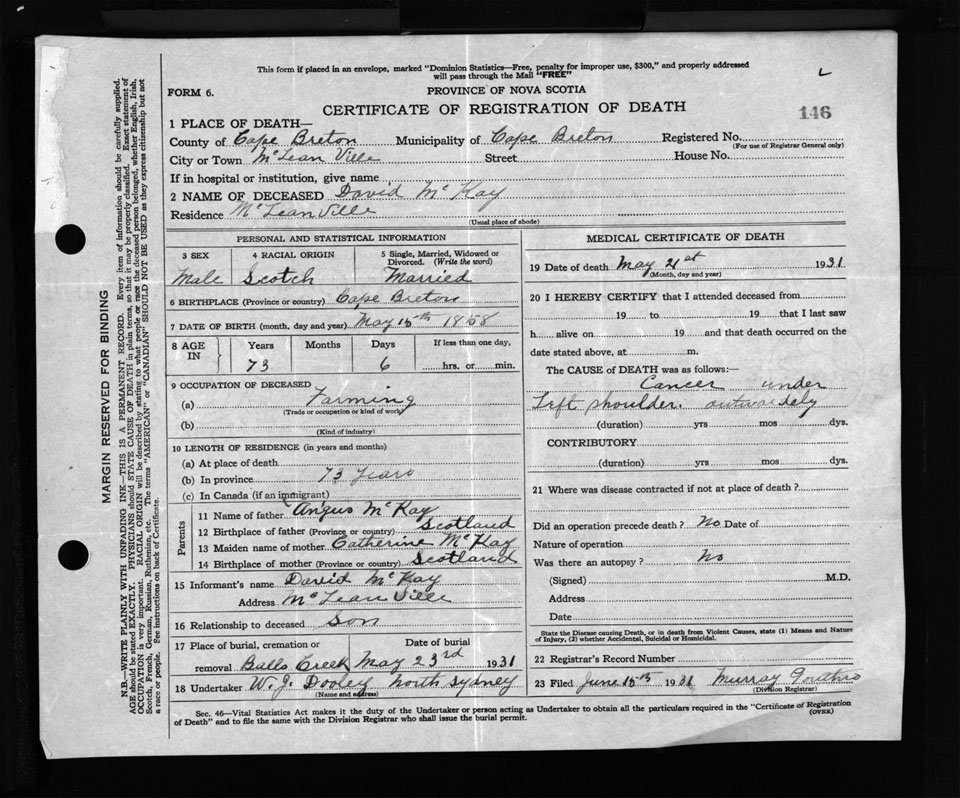 This form if placed in an envelope, marked "Dominion Statistics—Free, penalty for improper use, $300," and properly addressed
will pass through the Mail "FREE"
FORM 6.
PROVINCE OF NOVA SCOTIA
CERTIFICATE OF REGISTRATION OF DEATH
146
1 PLACE OF DEATH—
County of Cape Breton Municipality of Cape Breton Registered No.
(For use of Registrar General only)
City or Town McLean Ville Street House No.
If in hospital or institution, give name
2 NAME OF DECEASED David McKay
Residence McLean Ville
(Usual place of abode)
PERSONAL AND STATISTICAL INFORMATION
3 SEX 4 RACIAL ORIGIN 5 Single, Married, Widowed or
Divorced. (Write the word)
Male Scotch Married
6 BIRTHPLACE (Province or country) Cape Breton
7 DATE OF BIRTH (month, day and year) May 15th 1858
8 AGE IN Years Months Days If less than one day,
73 6 hrs. or min.
9 OCCUPATION OF DECEASED
(a) Farming
(Trade or occupation or kind of work)
(b)
(Kind of industry)
10 LENGTH OF RESIDENCE (in years and months)
(a) At place of death
(b) In province 73 years
(c) In Canada (if an immigrant)
Parents
11 Name of father Angus McKay
12 Birthplace of father (Province or country) Scotland
13 Maiden name of mother Catherine McKay
14 Birthplace of mother (Province or country) Scotland
15 Informant's name David McKay
Address McLean Ville
16 Relationship to deceased Son
17 Place of burial, cremation or Date of burial
removal Balls Creek May 23rd 1931
18 Undertaker W. J. Dooley North Sydney
(Name and address)
MEDICAL CERTIFICATE OF DEATH
19 Date of death May 21st 1931
(Month, day and year)
20 I HEREBY CERTIFY that I attended deceased from
19 to 19 that I last saw
h alive on 19 and that death occurred on the
date stated above, at m.
The CAUSE of DEATH was as follows:—
Cancer under
Left shoulder. outwardely
(duration) yrs mos dys.
CONTRIBUTORY
(duration) yrs mos dys.
21 Where was disease contracted if not at place of death?
Did an operation precede death? No Date of
Nature of operation
Was there an autopsy? No
(Signed) M.D.
Address
Date
State the Disease causing Death, or in death from Violent Causes, state (1) Means and Nature
of Injury, (2) whether Accidental, Suicidal or Homicidal.
22 Registrar's Record Number
23 Filed June 15th 1931 Murray
(Division Registrar)
Sec. 46—Vital Statistics Act makes it the duty of the Undertaker or person acting as Undertaker to obtain all the particulars required in the "Certificate of Registration
of Death" and to file the same with the Division Registrar who shall issue the burial permit.
(OVER)
MARGIN RESERVED FOR BINDING
N.B.—WRITE PLAINLY WITH UNFADING INK—THIS IS A PERMANENT RECORD. Every item of information should be carefully supplied.
AGE should be stated EXACTLY. PHYSICIANS should STATE CAUSE OF DEATH in plain terms, so that it may be properly classified. Exact statement of
OCCUPATION is very important. RACIAL ORIGIN will be described by stating to what people or race the deceased person belonged, whether English, Irish,
Scotch, French, German, Russian, Ruthenian, etc. The terms "AMERICAN" or "CANADIAN" SHOULD NOT BE USED as they express citizenship but not
a race or people. See instructions on back of Certificate.